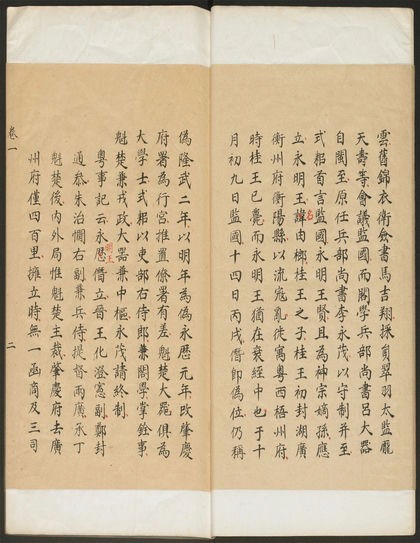 雲舊錦衣衛僉書馬吉翔採員翠羽太監龐
天壽等會議監國而閣學兵部尚書呂大器
自閩至原任兵部尚書李永茂以守制并至
式耜首言監國永明王賢且為神宗嫡孫應
立永明王諱由榔桂王之子桂王初封湖廣
名
衡州府衡陽縣以流寇亂徙寓粵西梧州府
時桂王已薨而永明王猶在衰絰中也于十
月初九日監國十四日丙戌僭即偽位仍稱
偽隆武二年以明年為偽永歷元年改肇慶
府署為行宮推置僚署有差魁楚大器俱為
大學士式耜以吏部右侍郎兼閣學掌銓事
魁楚兼戎政大器兼中樞永茂請終制
粵事記云永歷僭立晉王化澄憲副鄭封
明王
通叅朱治㵎右副兼兵侍提督兩廣永丁
魁楚後內外局惟魁楚主裁肇慶府去廣
州府僅四百里擁立時無一函商及三司
卷一
二